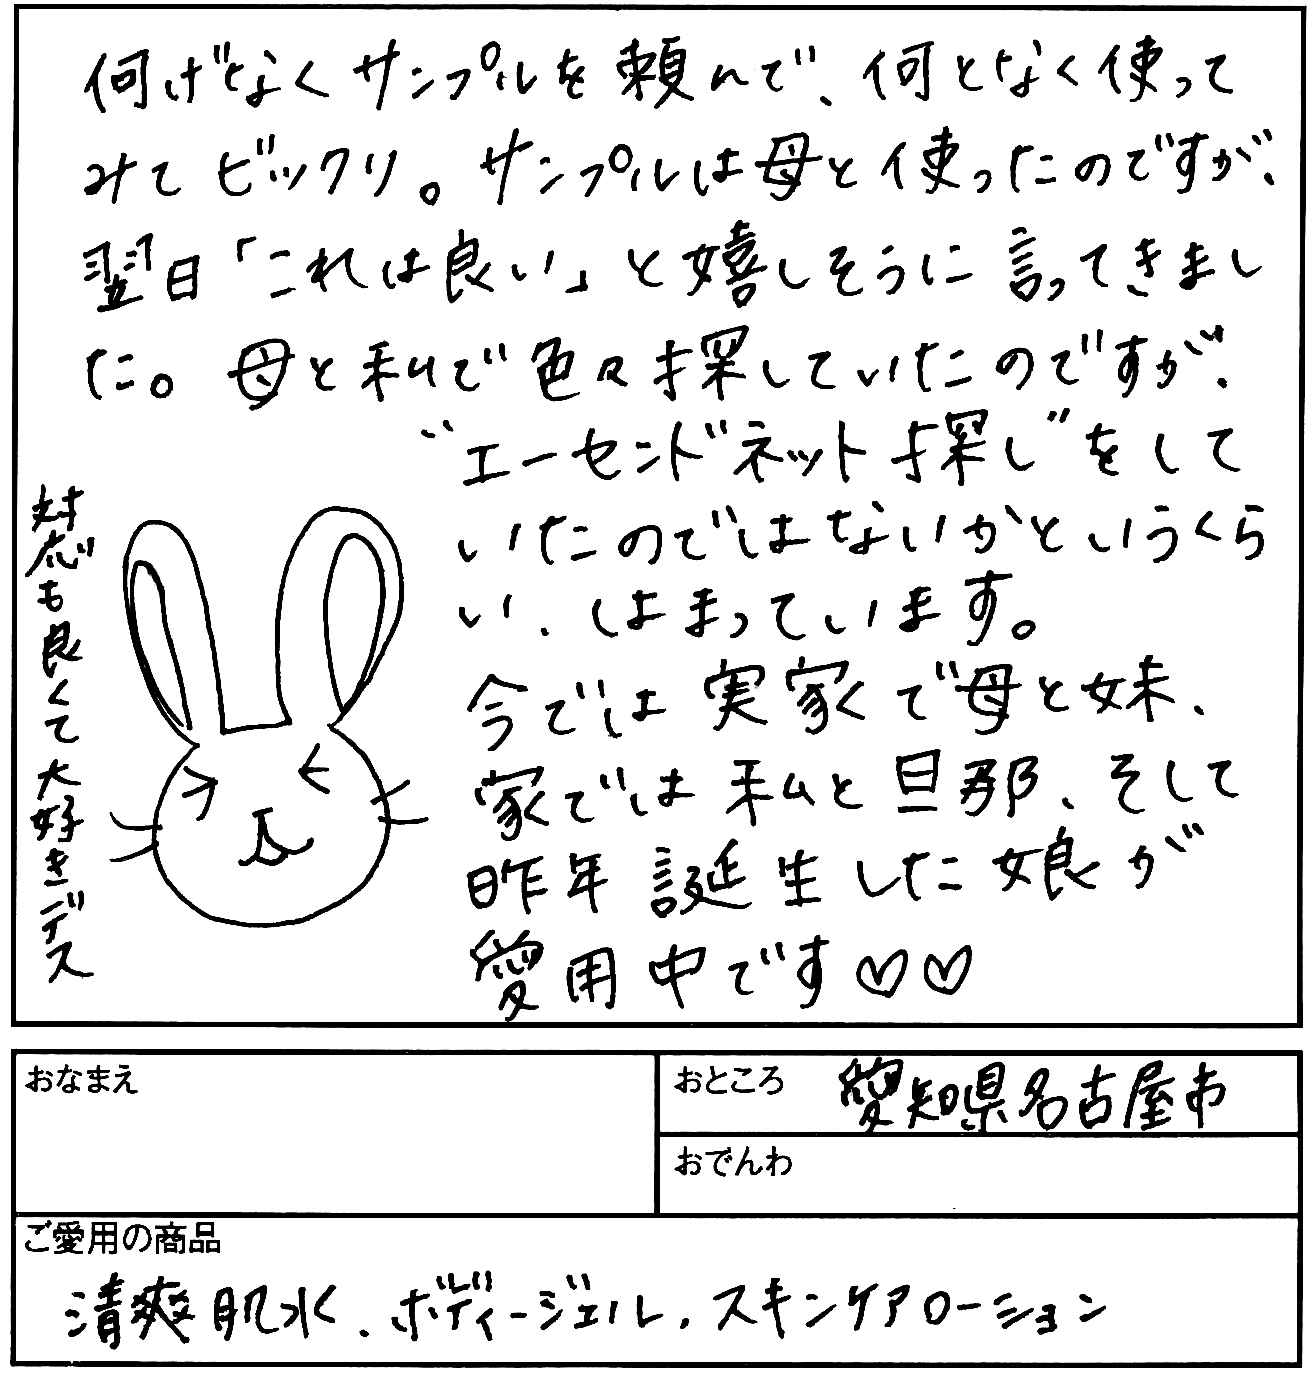 何げなくサンプルを頼んで、何となく使って
みてビックリ。サンプルは母と使ったのですが、
翌日「これは良い」と嬉しそうに言ってきまし
た。母と私で色々探していたのですが、
“エーセンドネット探し”をして
いたのではないかというくら
い、はまっています。
今では実家で母と妹、
家では私と旦那、そして
昨年誕生した娘が
愛用中です♡♡
対応も良くて大好きデス
おなまえ
おところ 愛知県名古屋市
おでんわ
ご愛用の商品
清爽肌水、ボディージェル、スキンケアローション